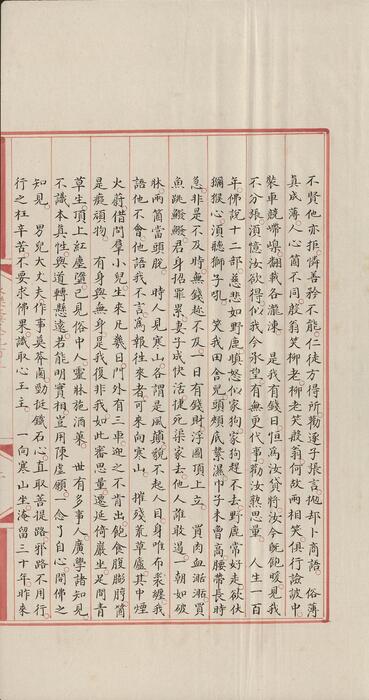 不賢他亦拒憐善矜不能仁徒方得所勸逐子張言拋却卜商語　俗薄
真成薄人心箇不同殷翁笑柳老柳老笑殷翁何故兩相笑俱行譣詖中
裝車競嵽嵲翻載各瀧涷　是我有錢日恒為汝貸將汝今既飽暖見我
不分張須憶汝欲得似我今承望有無更代事勸汝熟思量　人生一百
年佛說十二部慈悲如野鹿瞋怒似家狗家狗趕不去野鹿常好走欲伏
獼猴心須聽獅子吼　笑我田舍兒頭頰底縶澀巾子未曾高腰帶長時
急非是不及時無錢趂不及一日有錢財浮圖頂上立　買肉血㴔㴔買
魚跳鱍鱍君身招罪累妻子成快活纔死渠家去他人誰敢遏一朝如破
牀兩箇當頭脫　時人見寒山各謂是風顛貌不起人目身唯布裘纏我
語他不會他語我不言為報往來者可來向寒山　摧殘荒草廬其中煙
火蔚借問羣小兒生來凡幾日門外有三車迎之不肯出飽食腹膨脝箇
是癡頑物　有身與無身是我復非我如此審思量遷延倚巖坐足間青
草生頂上紅塵墮已見俗中人靈牀施酒菓　世有多事人廣學諸知見
不識本真性與道轉懸遠若能明實相豈用陳虛願一念了自心開佛之
知見　男兒大丈夫作事莫莽鹵勁挺鐵石心直取菩提路邪路不用行
行之枉辛苦不要求佛果識取心王主　一向寒山坐淹留三十年昨來